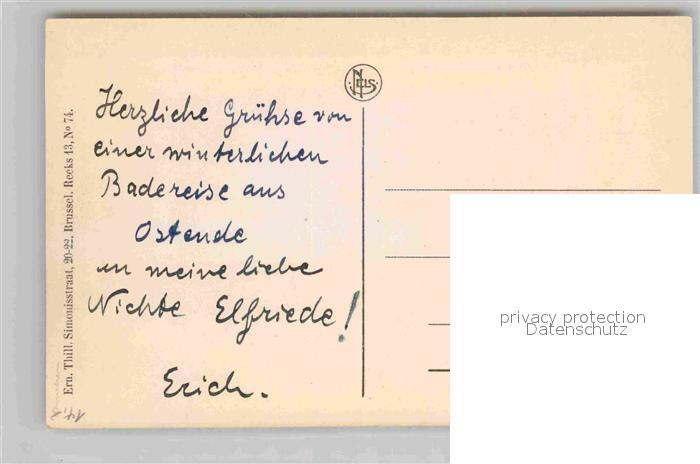 NELS
Herzliche Grühse von
einer winterlichen
Badereise aus
Ostende
an meine liebe
Nichte Elfriede!
Erich.
Ern. Thill. Simonisstraat, 20-22, Brussel. Reeks 43, No 74.
privacy protection
Datenschutz